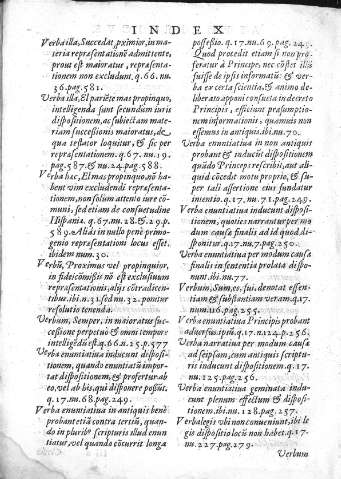 INDEX
Verba illa, Succedat pximior, in ma-
teria repræsentationũ admittente,
prout est maioratus, repræsenta-
tionem non excludunt. q. 66. nu.
16. pag. 581.
Verba illa, El pariẽte mas propinquo,
intelligenda sunt secundum iuris
dispositionem, ac subiectam mate-
riam successionis maioratus, de
qua testator loquitur, & sic per
repræsentationem. q. 67. nu. 19.
pag. 587. & nu. 24. pag. 588.
Verba hæc, El mas propinquo, nõ ha-
bent vim excludendi repræsenta-
tionem, non solum attento iure cõ-
muni, sed etiam de consuetudine
Hispaniæ. q. 67. nu. 28. & 29. p.
589. Aliàs in nullo penè primo-
genio repræsentationi locus esset.
ibidem num. 30.
Verbũ, Proximus vel propinquior,
in fideicõmissis nõ est exclusiuum
repræsentationis, alijs cõtradicen-
tibus. ibi. n. 31. sed nu. 32. ponitur
resolutio tenenda.
Verbum, Semper, in maioratus suc-
cessione perpetuò & omni tempore
intelligẽdũ est. q. 66. n. 25. p. 577
Verba enuntiatiua inducunt disposi-
tionem, quando enuntiatũ impor-
tat dispositionem, & profertur ab
eo, vel ab his, qui disponere possũt.
q. 17. nu. 68. pag. 249.
Verba enuntiatiua in antiquis benè
probant etiã contra tertiũ, quan-
do in pluribꝰ scripturis illud enun-
tiatur, vel quando cõcurrit longa
possessio. q. 17. nu. 69. pag. 249.
Quod procedit etiam si non pro-
feratur à Principe, nec cõstet illũ
fuisse de ipsis informatũ: & ver-
ba ex certa scientia, & animo de-
liberato apponi consueta in decreto
Principis, efficiunt præsumptio-
nem informationis, quamuis non
essemus in antiquis. ibi. nu. 70.
Verba enuntiatiua in non antiquis
probant & inducũt dispositionem
quãdo Princeps rescribit, aut ali-
quid cõcedit motu proprio, & su-
per tali assertione eius fundatur
intentio. q. 17. nu. 71. pag. 249.
Verba enuntiatiua inducunt disposi-
tionem, quoties narrantur per mo-
dum causæ finalis ad id quod di-
sponitur. q. 17. nu. 7. pag. 250.
Verba enuntiatiua per modum causæ
finalis in sententia prolata dispo-
nunt. ibi. nu. 77.
Verbum, Sum, es, fui, denotat essen-
tiam & substantiam veram. q. 17.
num. 116. pag. 255.
Verba enuntiatiua Principis probant
aduersus ipsũ. q. 17. n. 124. p. 256.
Verba narratiua per modum causæ
ad seipsam, cum antiquis scriptu-
ris inducunt dispositionem. q. 17.
nu. 125. pag. 256.
Verba enuntiatiua geminata indu-
cunt plenum effectum & disposi-
tionem. ibi. nu. 128. pag. 257.
Verba legis vbi non conueniunt, ibi le-
gis dispositio locũ non habet. q. 17.
nu. 227. pag. 279.
Verbum